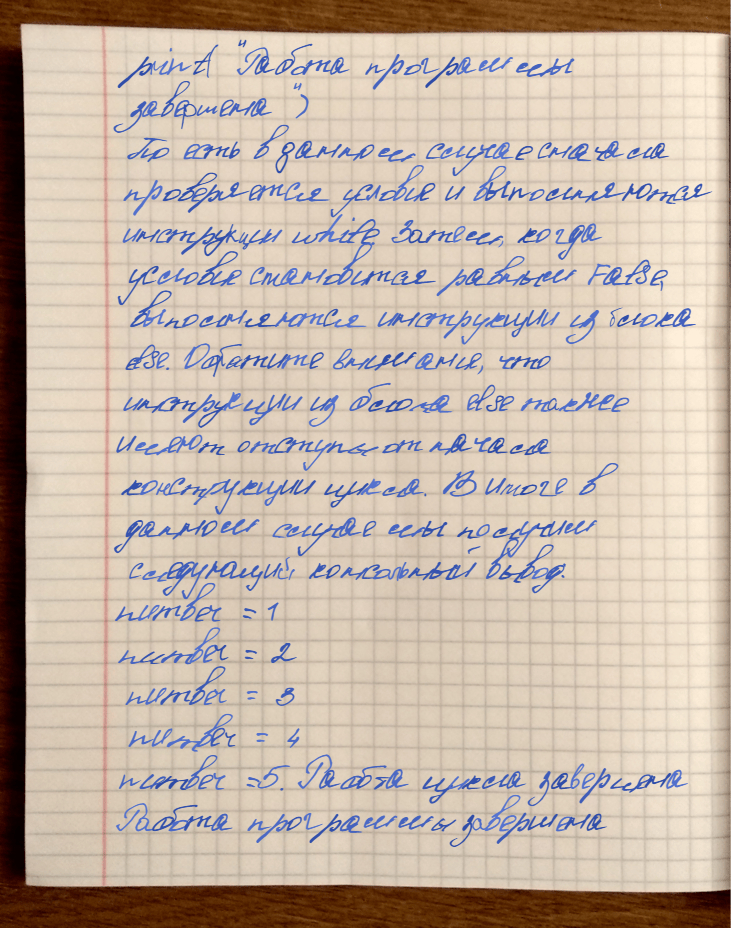 print("Работа программы
завершена")
То есть в данном случае сначала
проверяется условие и выполняются
инструкции while. Затем, когда
условие становится равным False,
выполняются инструкции из блока
else. Обратите внимание, что
инструкции из блока else также
имеют отступы от начала
конструкции цикла. В итоге в
данном случае мы получим
следующий консольный вывод.
number = 1
number = 2
number = 3
number = 4
number =5. Работа цикла завершена
Работа программы завершена